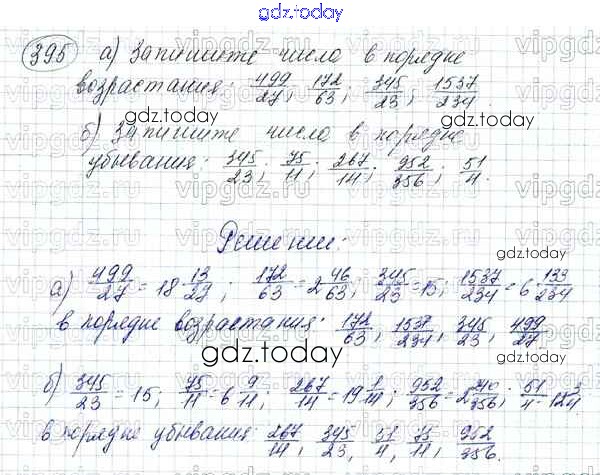 gdz.today
395 а) Запишите числа в порядке
возрастания: 499/27; 172/63; 345/23; 1537/234.
gdz.today
gdz.today
б) Запишите числа в порядке
убывания: 345/23; 75/11; 267/14; 952/356; 51/4.
Решение:
gdz.today
а) 499/27 = 18 13/27; 172/63 = 2 46/63; 345/23 = 15; 1537/234 = 6 133/234
в порядке возрастания: 172/63, 1537/234, 345/23, 499/27.
gdz.today
gdz.today
б) 345/23 = 15; 75/11 = 6 9/11; 267/14 = 19 1/14; 952/356 = 2 240/356; 51/4 = 12 3/4
в порядке убывания: 267/14, 345/23, 51/4, 75/11, 952/356.
gdz.today